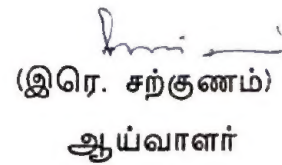 (இரெ. சற்குணம்)
ஆய்வாளர்